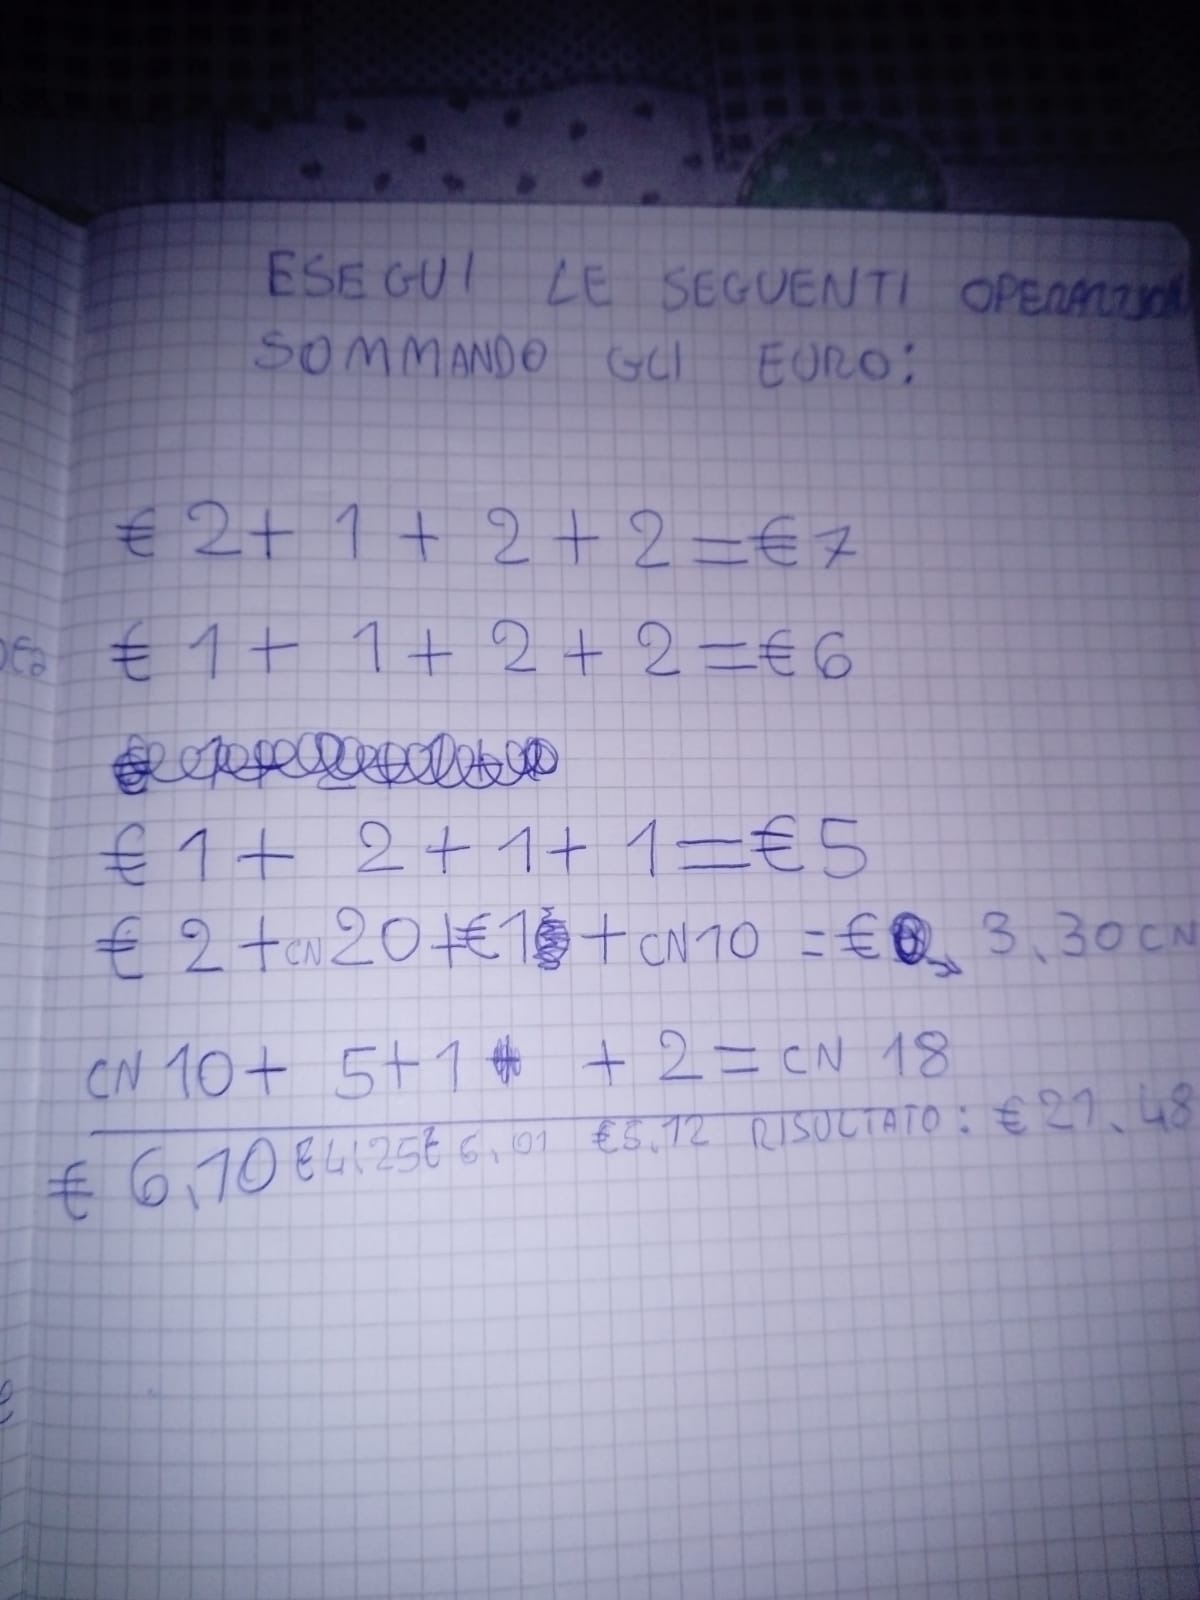 ESEGUI LE SEGUENTI
SOMMANDO GLI EURO:
€ 2 + 1 + 2 + 2 = € 7
€ 1 + 1 + 2 + 2 = € 6
€ 1 + 2 + 1 + 1 = € 5
€ 2 + CN 20 + € 1 + CN 10 = € 3,30 CN
CN 10 + 5 + 1 + 2 = CN 18
€ 6,10 € 4,25 € 6,01 € 5,12 RISULTATO: € 21,48